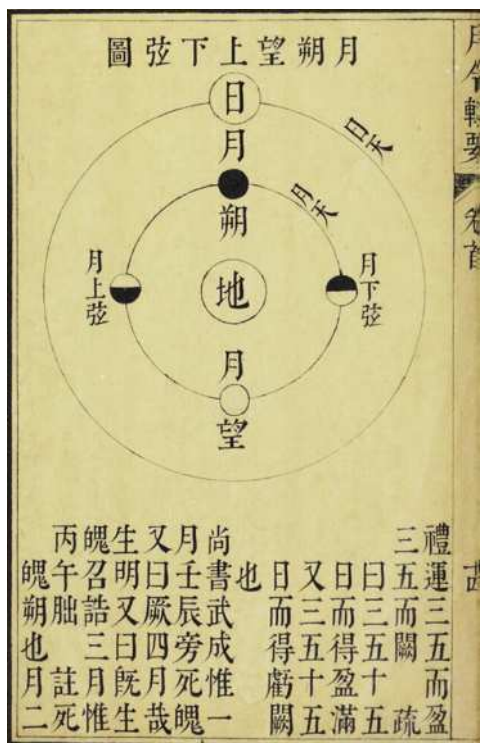 月令輯要
卷首
月朔望上下弦圖
日
日天
月
朔
月天
月上弦
地
月下弦
月
望
禮運三五而盈
三五而闕 疏
曰三五十五
日而得盈滿
又三五十五
日而得虧闕
也
尚書武成惟一
月壬辰旁死魄
又曰厥四月哉
生明又曰旣生
魄召誥三月惟
丙午朏 註死
魄朔也月二